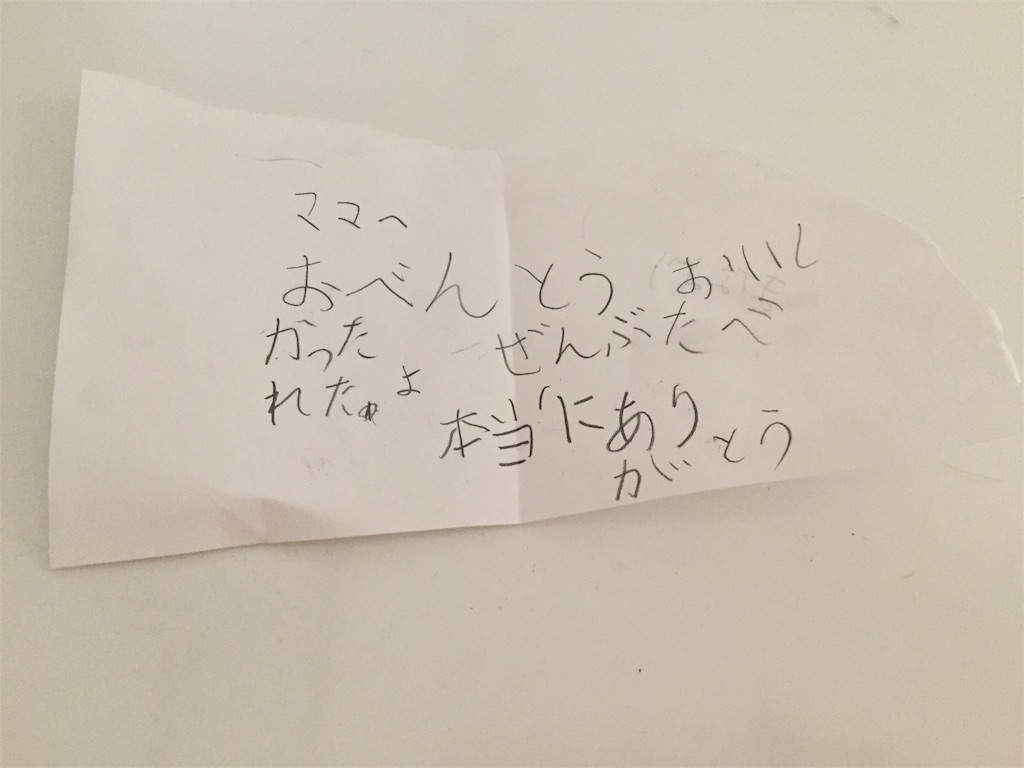 ママへ
おべんとう おいし
かった ぜんぶたべ
れたよ
本当にあり
がとう